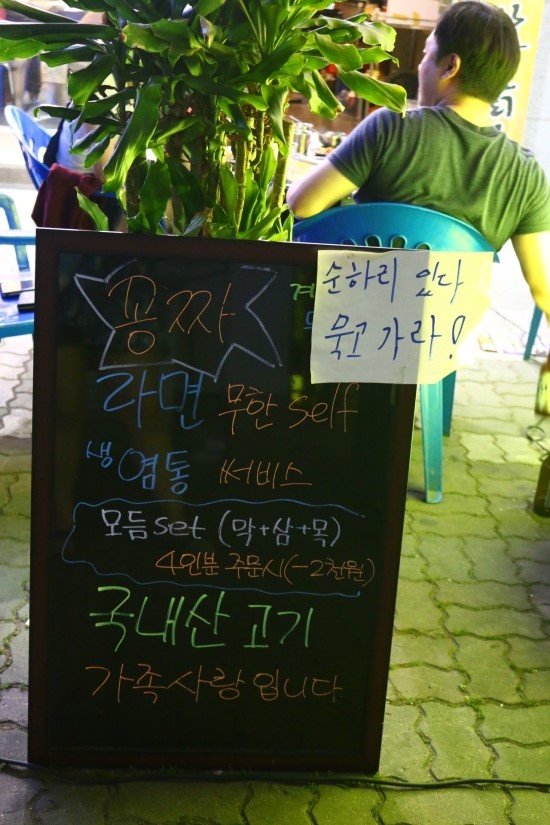 공짜
순하리 있다
묵고 가라!
라면 무한 self
생 염통 써비스
모듬set (막+삼+목)
4인분 주문시(-2천원)
국내산 고기
가족사랑 입니다.